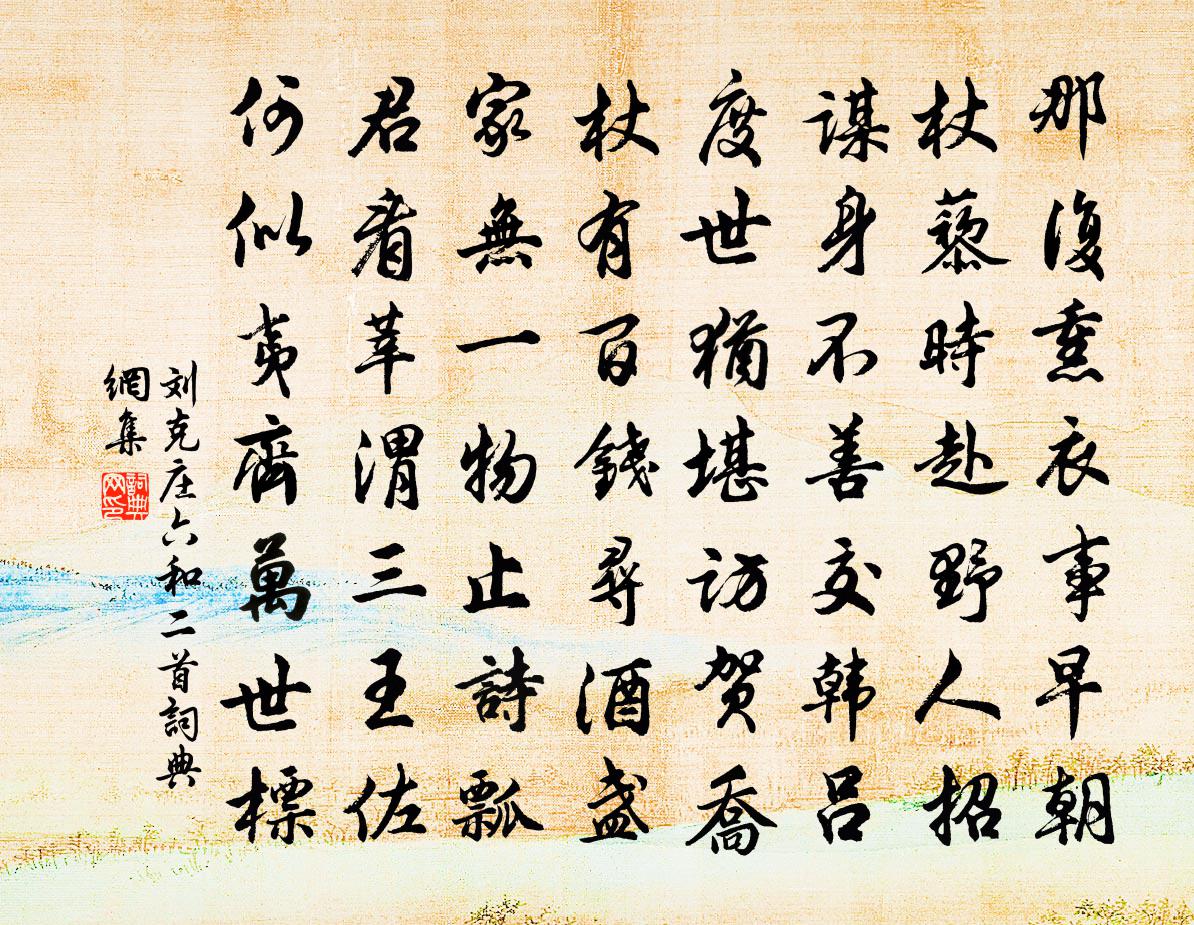 那復熏衣事早朝
杖藜時赴野人招
謀身不善交韩呂
度世猶堪訪贺喬
杖有百錢尋酒盏
家無一物止詩瓢
君看莘渭三王佐
何似夷齊萬世標
刘克庄六和二首詞典
網集
詞典
网印